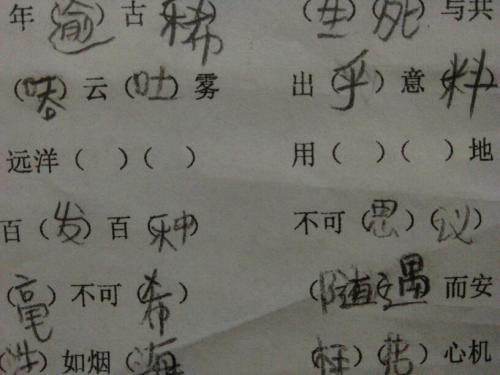 年（逾）古（稀）　（生）（死）与共
（吞）云（吐）雾　出（乎）意（料）
远洋（　）（　）　用（　）（　）地
百（发）百（种）　不可（思）（议）
（毫）不可（希）　（随）（遇）而安
（浩）如烟（海）　（枉）（费）心机